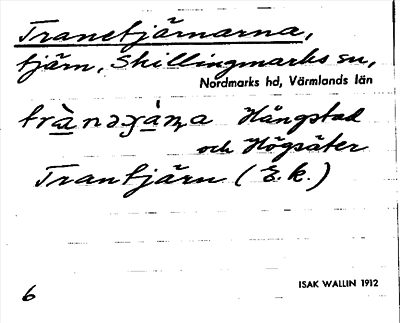 Tranetjärnarna,
tjärn, Skillingmarks sn,
Nordmarks hd, Värmlands län
Hångstad
och Högsäter
Trantjärn (E.k.)
ISAK WALLIN 1912
6